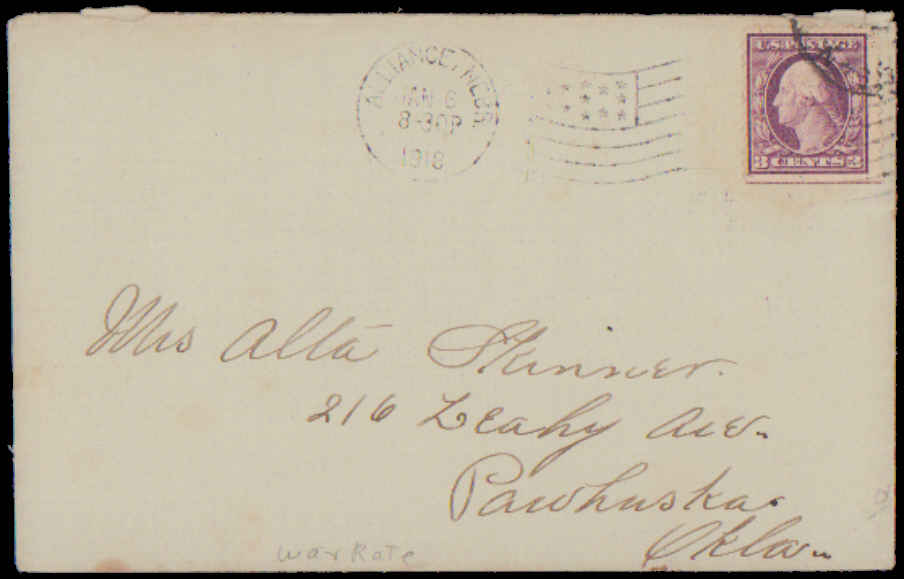 ALLIANCE, NEBR.
JAN 6
8-30P
1918
U.S. POSTAGE
3 CENTS 3
Mrs Alta Skinner.
216 Leahy Ave.
Pawhuska.
Okla.
War Rate